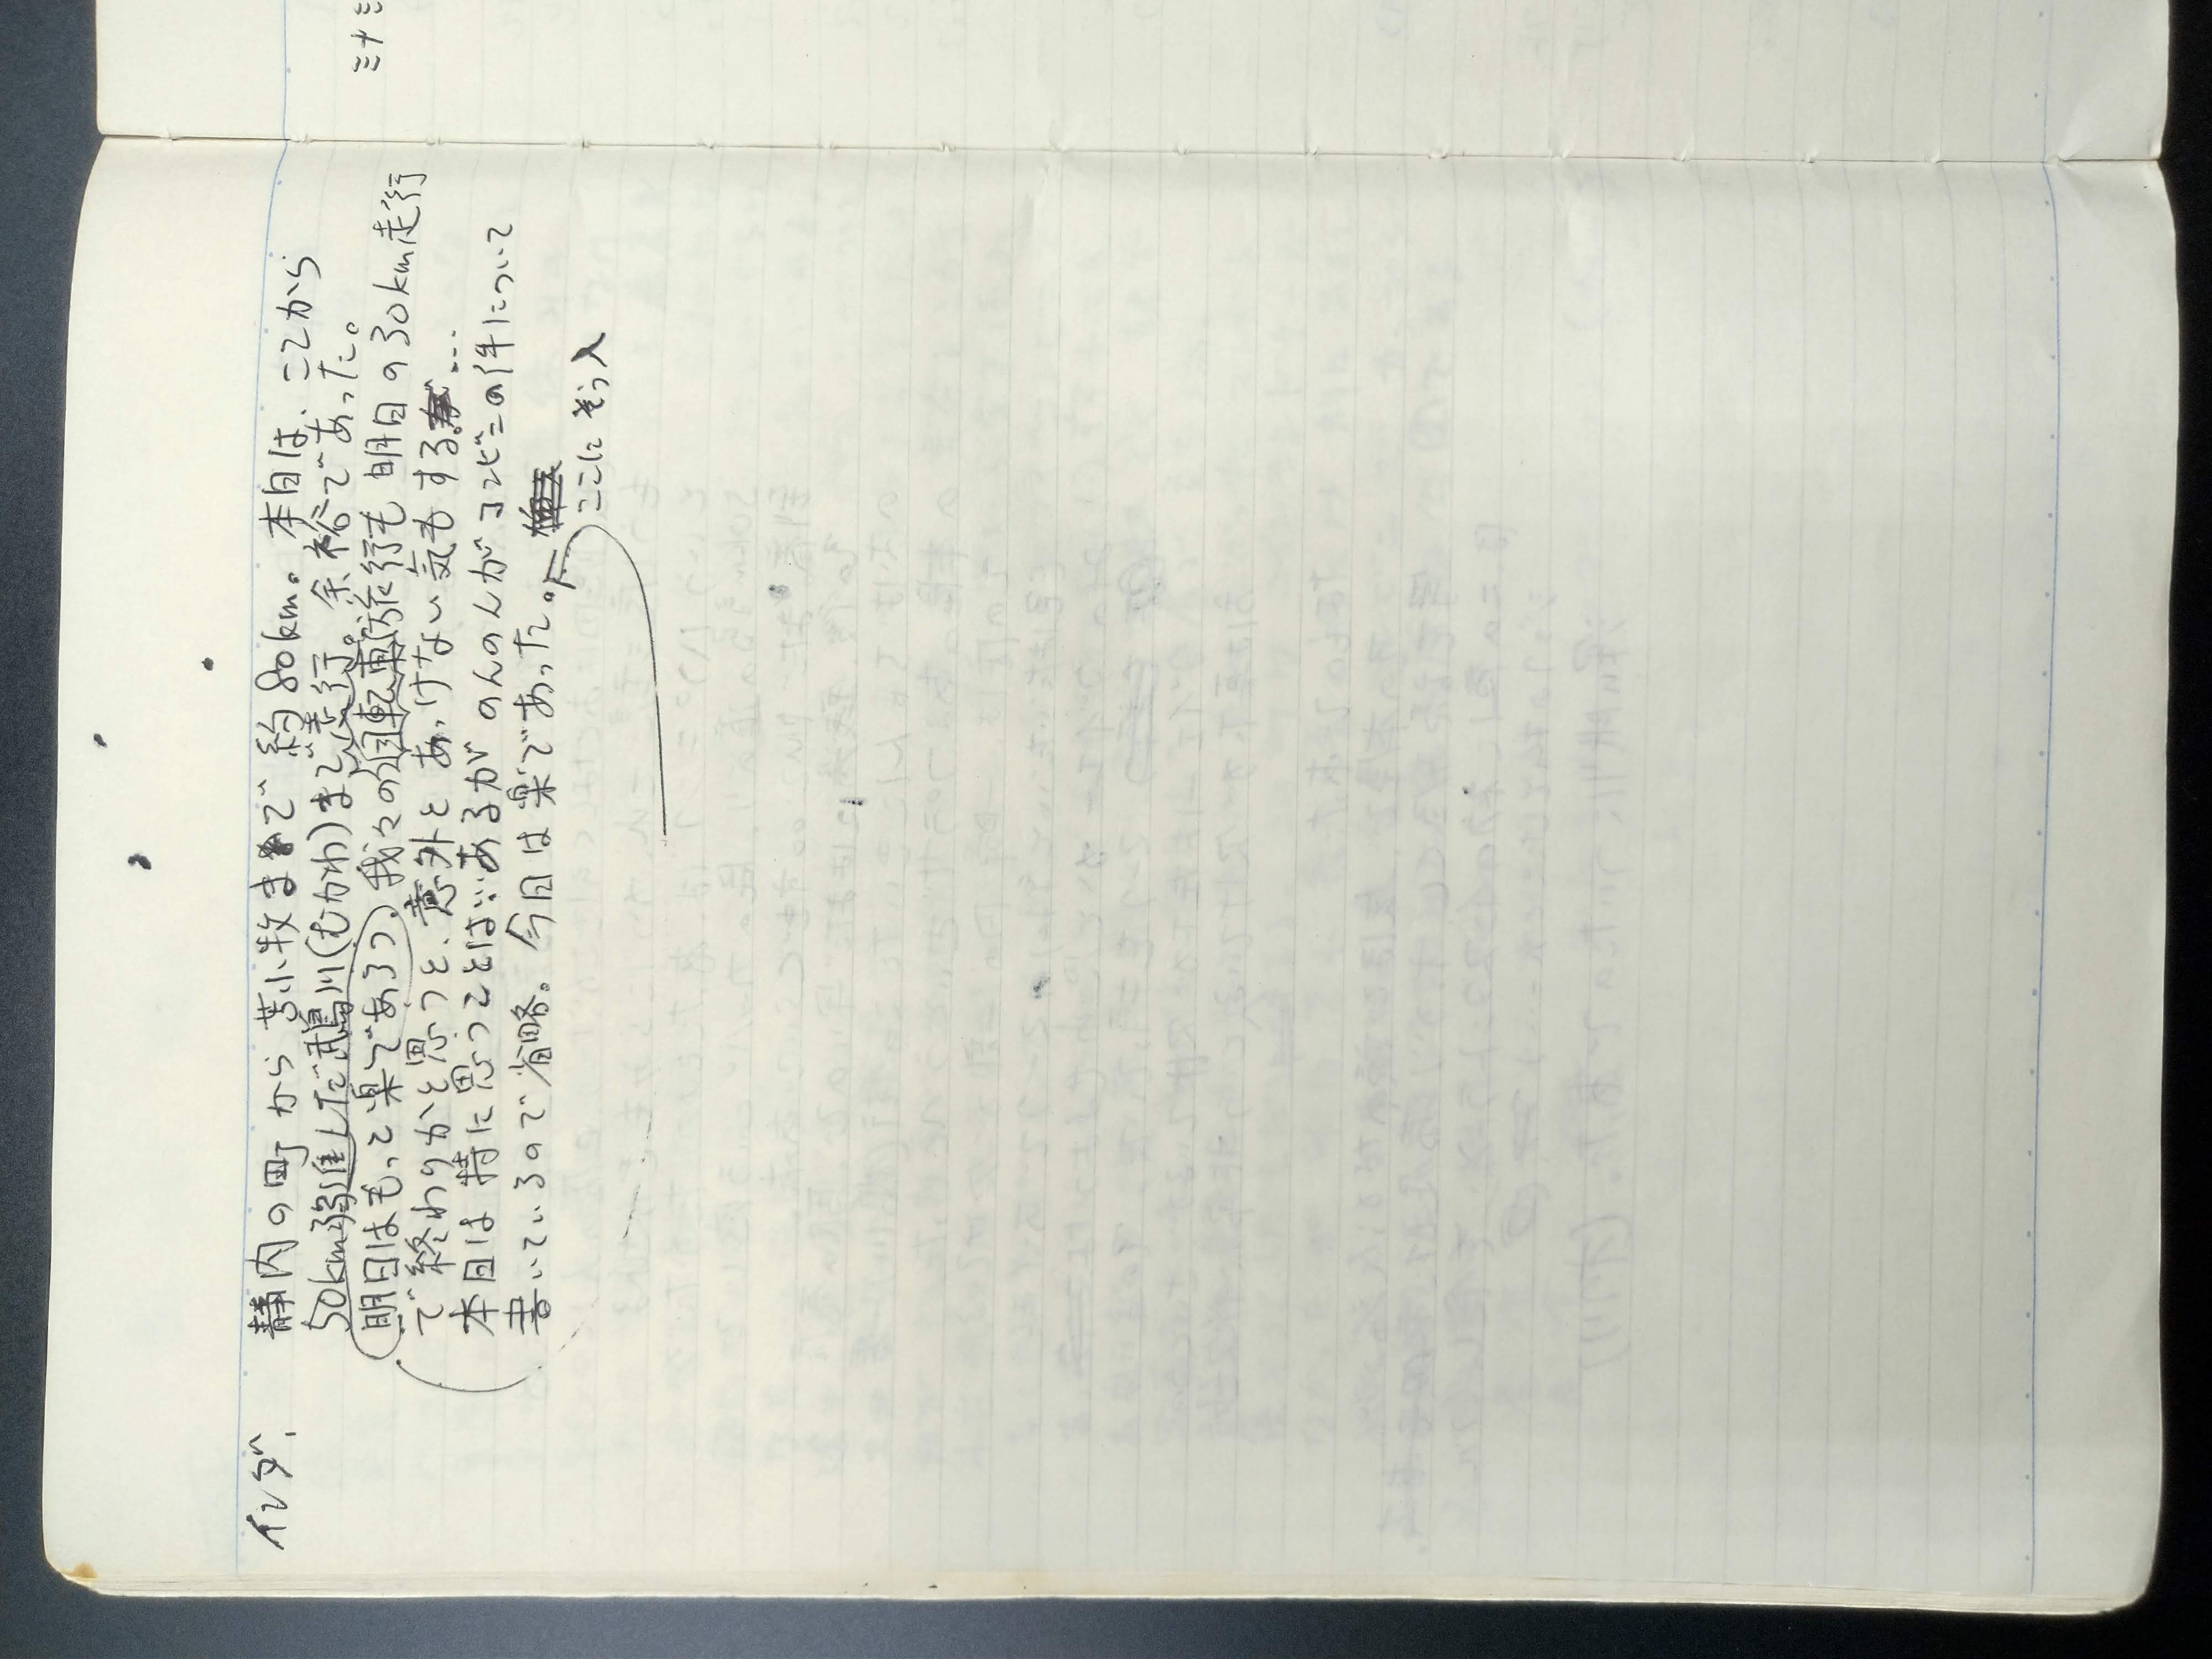 インダ、
静内の町から苫小牧まで約80km。本日は、ここから
50km弱進んだ鵡川(むかわ)まで走行。余裕であった。
明日はもって楽であろう。我々の自転車旅行も明日の30km走行
で終わりかと思うと、意外とあっけない気もする。…
本日は特に思うことは…あるが のんのんがコンビニの件について
書いているので省略。今日は楽であった。
ここにそう入
ミナミ